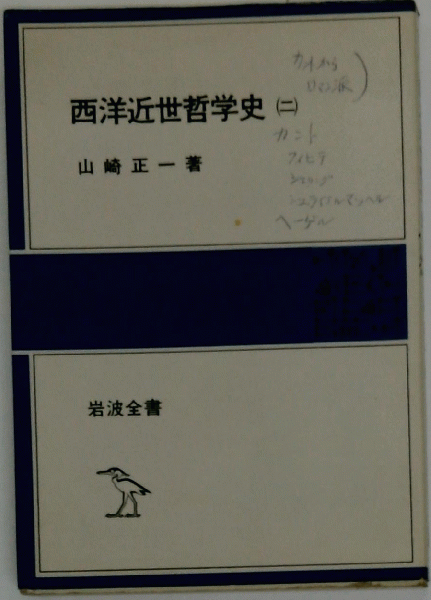 西洋近世哲学史 (二)
山崎正一著
カントから
ロマン派
カント
フィヒテ
シェリング
シュライエルマッヘル
ヘーゲル
岩波全書